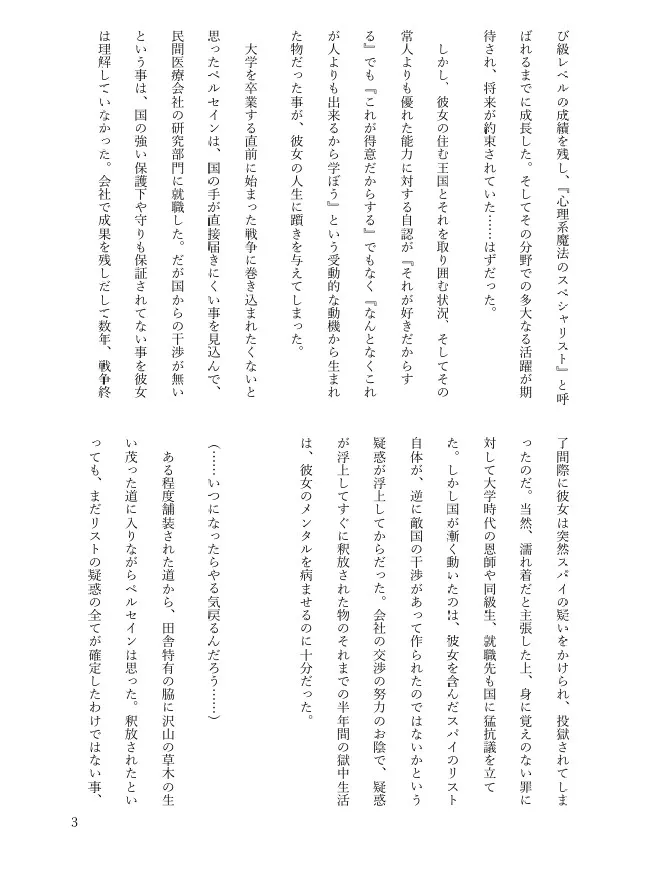 び級レベルの成績を残し、『心理系魔法のスペシャリスト』と呼
ばれるまでに成長した。そしてその分野での多大なる活躍が期
待され、将来が約束されていた……はずだった。
しかし、彼女の住む王国とそれを取り囲む状況、そしてその
常人よりも優れた能力に対する自認が『それが好きだからす
る』でも『これが得意だからする』でもなく『なんとなくこれ
が人よりも出来るから学ぼう』という受動的な動機から生まれ
た物だった事が、彼女の人生に躓きを与えてしまった。
大学を卒業する直前に始まった戦争に巻き込まれたくないと
思ったペルセインは、国の手が直接届きにくい事を見込んで、
民間医療会社の研究部門に就職した。だが国からの干渉が無い
という事は、国の強い保護下や守りも保証されてない事を彼女
は理解していなかった。会社で成果を残しだして数年、戦争終
了間際に彼女は突然スパイの疑いをかけられ、投獄されてしま
ったのだ。当然、濡れ着だと主張した上、身に覚えのない罪に
対して大学時代の恩師や同級生、就職先も国に猛抗議を立て
た。しかし国が漸く動いたのは、彼女を含んだスパイのリスト
自体が、逆に敵国の干渉があって作られたのではないかという
疑惑が浮上してからだった。会社の交渉の努力のお陰で、疑惑
が浮上してすぐに釈放された物のそれまでの半年間の獄中生活
は、彼女のメンタルを病ませるのに十分だった。
(……いつになったらやる気戻るんだろう……)
ある程度舗装された道から、田舎特有の脇に沢山の草木の生
い茂った道に入りながらペルセインは思った。釈放されたとい
っても、まだリストの疑惑の全てが確定したわけではない事、
3